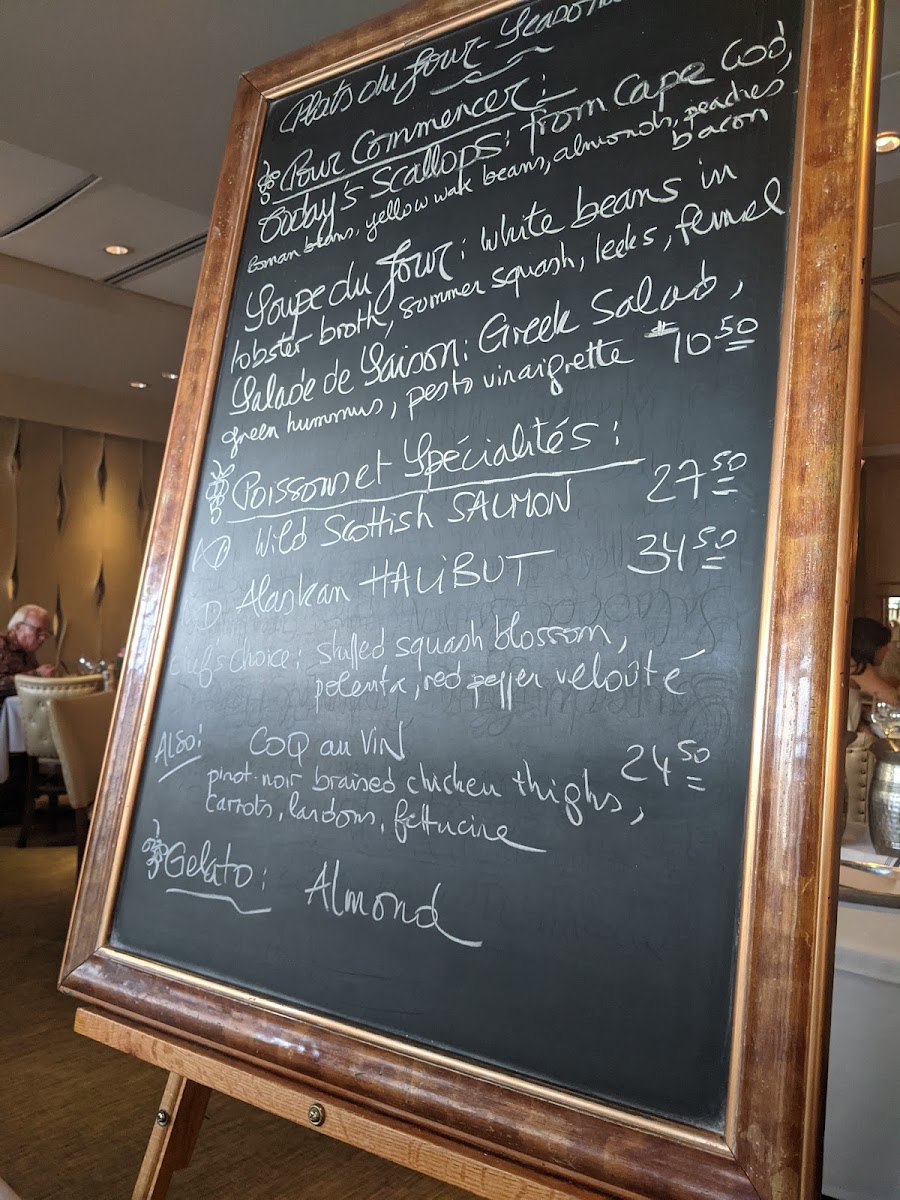 Plats du Jour - Seasona
Pour Commencer:
Today's Scallops: from Cape Cod,
roman beans, yellow wax beans, almonds, peaches
bacon
Soupe du Jour: White beans in
lobster broth, summer squash, leeks, fennel
Salade de Saison: Greek Salad,
green hummus, pesto vinaigrette $10.50
Poissons et Spécialités:
Wild Scottish SALMON 27.50
Alaskan HALIBUT 34.50
choice: stuffed squash blossom,
polenta, red pepper velouté
ALSO: COQ au ViN 24.50
pinot-noir braised chicken thighs,
carrots, lardons, fettucine
Gelato: Almond